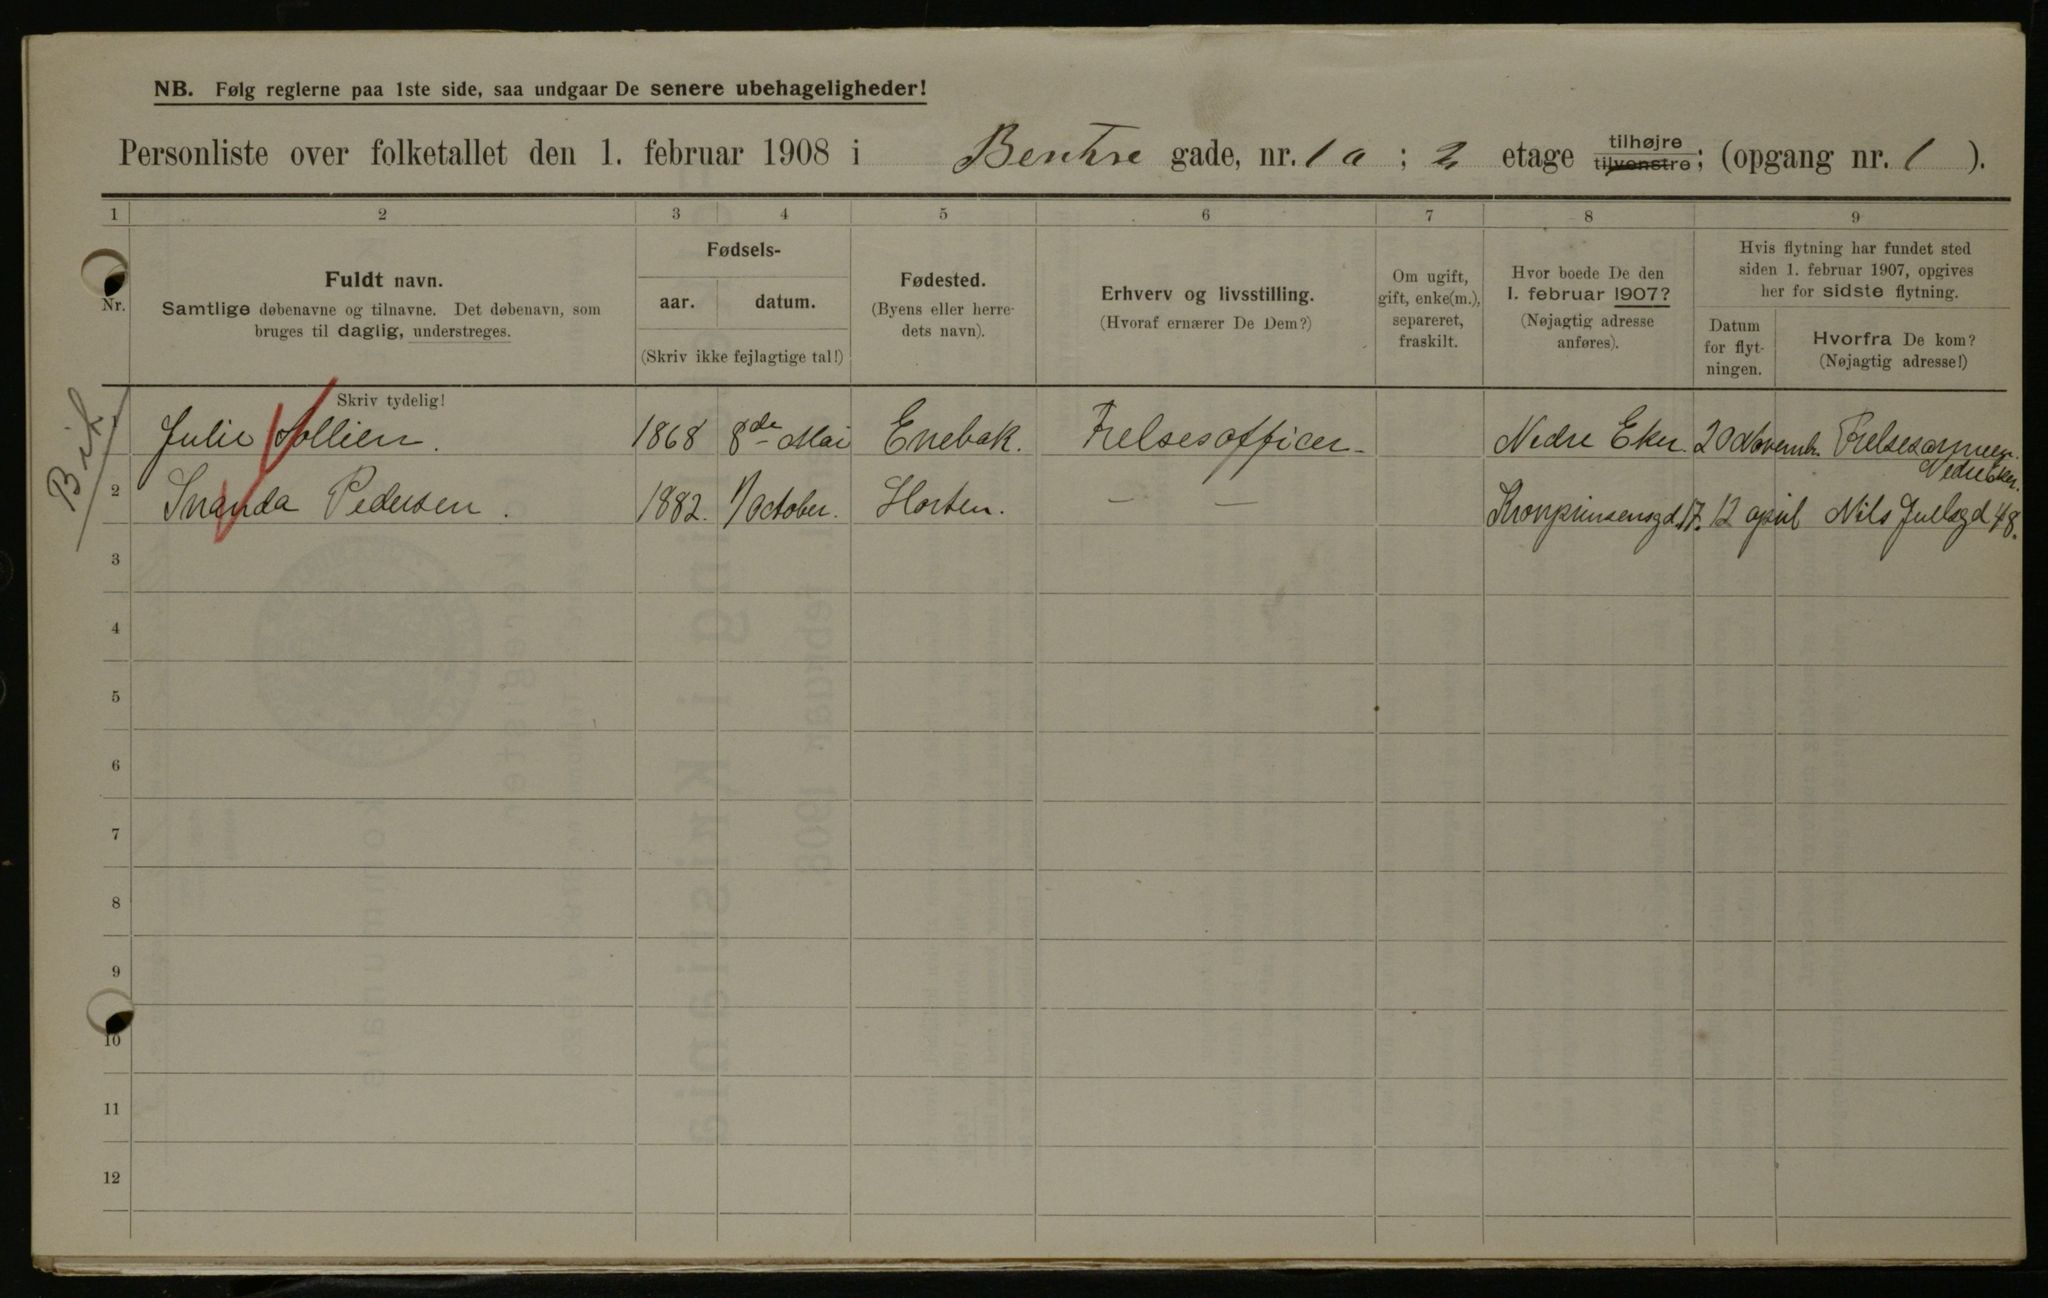 NB. Følg reglerne paa 1ste side, saa undgaar De senere ubehageligheder!
Personliste over folketallet den 1. februar 1908 i Bentse gade, nr. 1 a ; 2 etage tilhøjre tilvenstre; (opgang nr. 1 ).
1 2 3 4 5 6 7 8 9
Nr.
Fuldt navn.
Samtlige døbenavne og tilnavne. Det døbenavn, som
bruges til daglig, understreges.
Skriv tydelig!
Fødsels-
aar. datum.
(Skriv ikke fejlagtige tal!)
Fødested.
(Byens eller herre-
dets navn).
Erhverv og livsstilling.
(Hvoraf ernærer De Dem?)
Om ugift,
gift, enke(m.),
separeret,
fraskilt.
Hvor boede De den
1. februar 1907?
(Nøjagtig adresse
anføres).
Hvis flytning har fundet sted
siden 1. februar 1907, opgives
her for sidste flytning.
Datum
for flyt-
ningen.
Hvorfra De kom?
(Nøjagtig adresse!)
1 Julie Sollien. 1868 8de Mai Enebak. Frelsesofficer Nedre Eker. 20 Novemb. Frelsesarmeen.
Nedre Eker.
2 Pedersen. 1882. 1/ October. Horten. — — Kronprinsensgd 17. 12 april Nils Juelsgd 48.
3
4
5
6
7
8
9
10
11
12